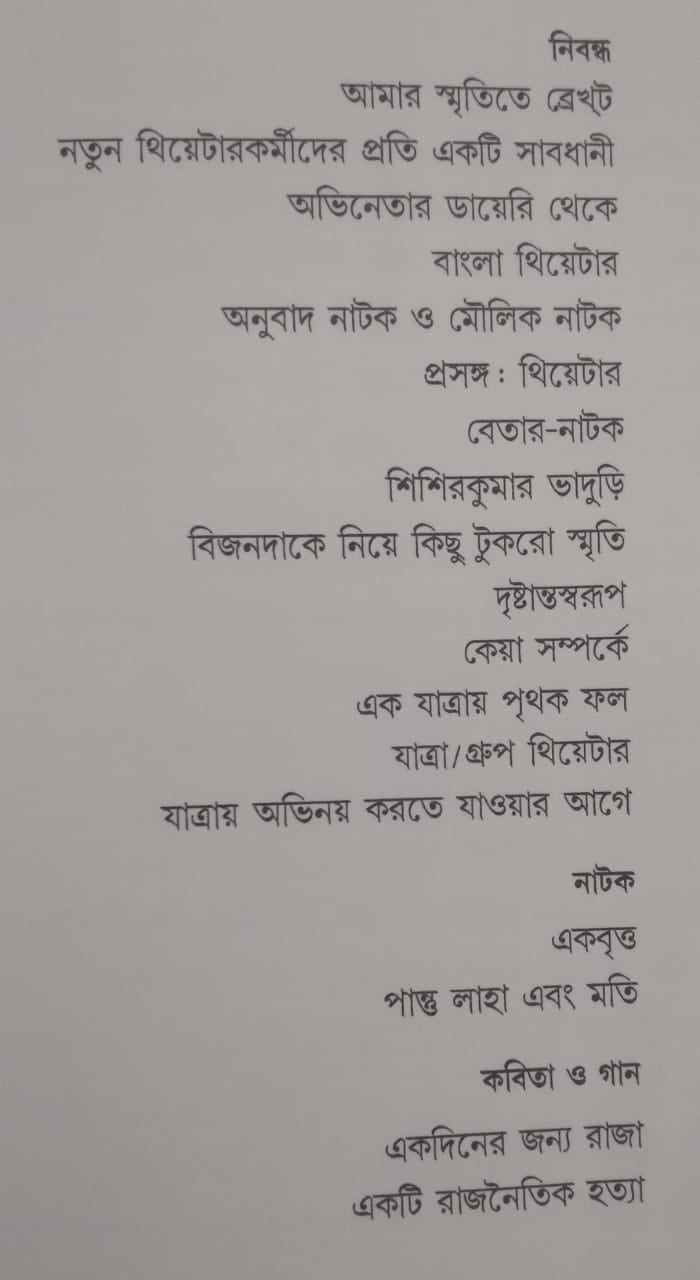 নিবন্ধ
আমার স্মৃতিতে ব্রেখ্‌ট
নতুন থিয়েটারকর্মীদের প্রতি একটি সাবধানী
অভিনেতার ডায়েরি থেকে
বাংলা থিয়েটার
অনুবাদ নাটক ও মৌলিক নাটক
প্রসঙ্গ : থিয়েটার
বেতার-নাটক
শিশিরকুমার ভাদুড়ি
বিজনদাকে নিয়ে কিছু টুকরো স্মৃতি
দৃষ্টান্তস্বরূপ
কেয়া সম্পর্কে
এক যাত্রায় পৃথক ফল
যাত্রা/গ্রুপ থিয়েটার
যাত্রায় অভিনয় করতে যাওয়ার আগে
নাটক
একবৃত্ত
পান্তু লাহা এবং মতি
কবিতা ও গান
একদিনের জন্য রাজা
একটি রাজনৈতিক হত্যা